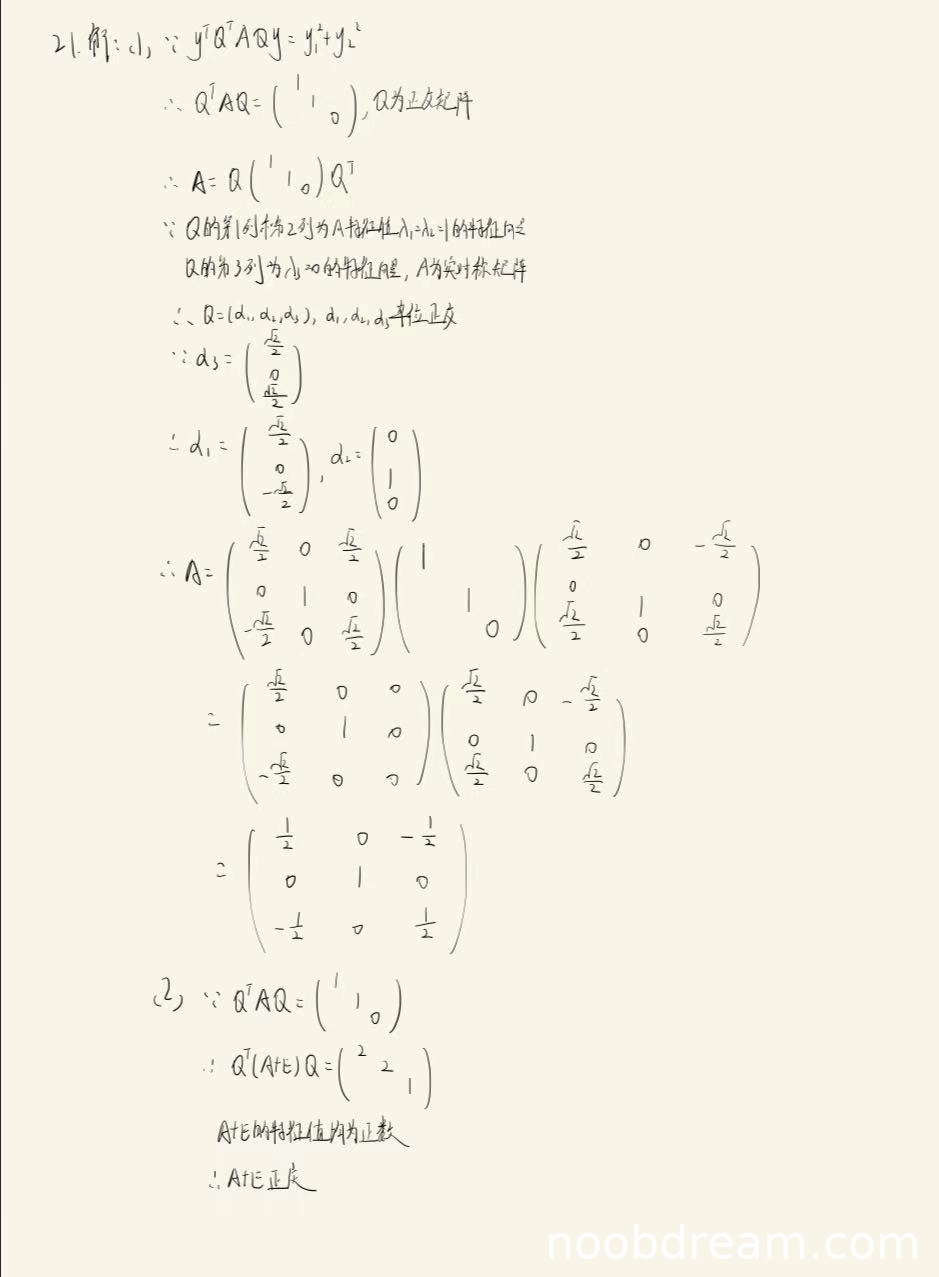 21.解:(1) ∵ yᵀQᵀAQy = y₁²+y₂²
∴ QᵀAQ = ( 1 1 0 ), Q为正交矩阵
∴ A = Q ( 1 1 0 ) Qᵀ
∵ Q的第1列和第2列为A特征值λ₁=λ₂=1的特征向量
Q的第3列为λ₃=0的特征向量, A为实对称矩阵
∴ Q=(α₁, α₂, α₃), α₁, α₂, α₃单位正交
∵ α₃ = ( √2/2 0 √2/2 )
∴ α₁ = ( √2/2 0 -√2/2 ), α₂ = ( 0 1 0 )
∴ A = ( √2/2 0 √2/2 0 1 0 -√2/2 0 √2/2 ) ( 1 1 0 ) ( √2/2 0 -√2/2 0 1 0 √2/2 0 √2/2 )
= ( √2/2 0 0 0 1 0 -√2/2 0 0 ) ( √2/2 0 -√2/2 0 1 0 √2/2 0 √2/2 )
= ( 1/2 0 -1/2 0 1 0 -1/2 0 1/2 )
(2) ∵ QᵀAQ = ( 1 1 0 )
∴ Qᵀ(A+E)Q = ( 2 2 1 )
A+E的特征值均为正数
∴ A+E正定
noobdream.com